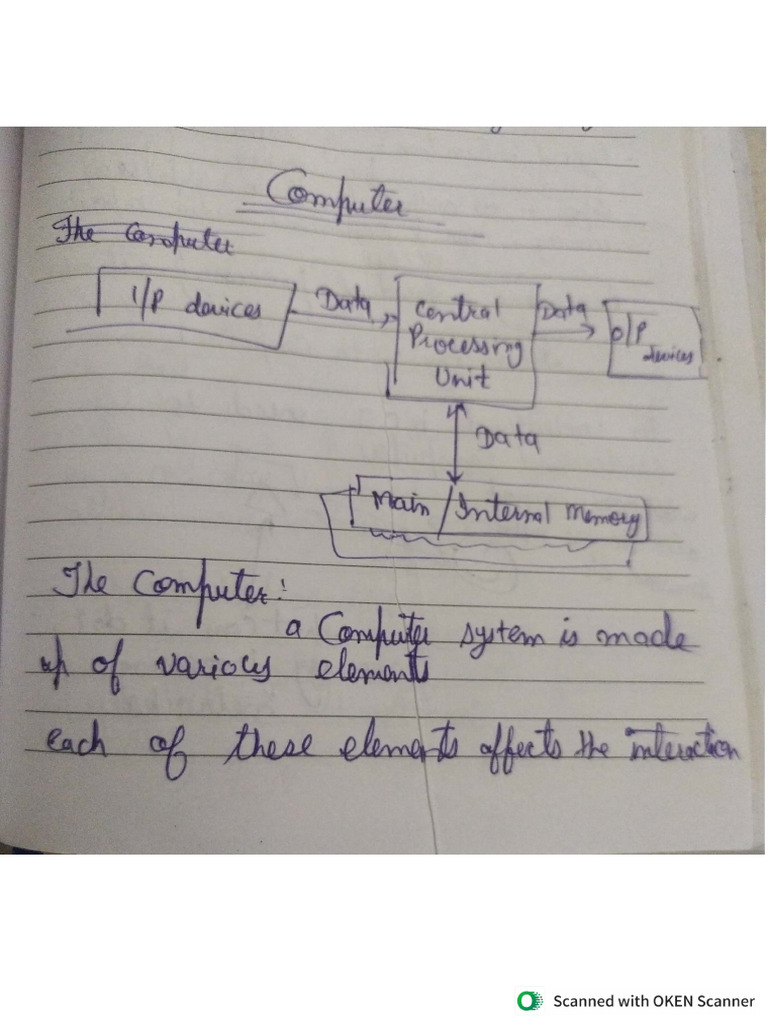 Computer
The Computer
I/P devices
Data
Central
Processing
Unit
Data
O/P
devices
Data
Main / Internal Memory
The Computer:
a Computer system is made
up of various elements
each of these elements affects the interaction
Scanned with OKEN Scanner